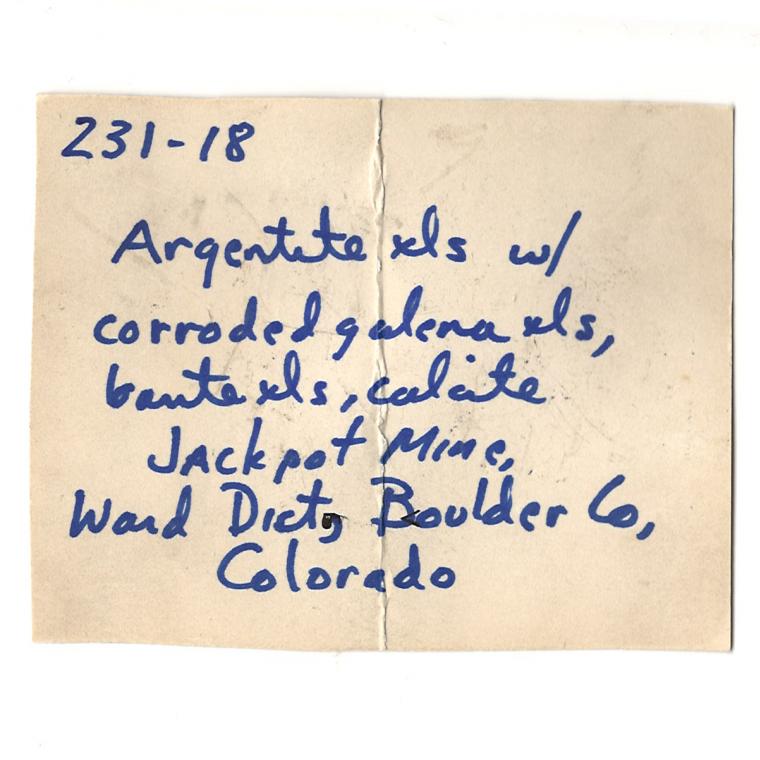 231-18
Argentite xls w/
corroded galena xls,
barite xls, calcite
Jackpot Mine,
Ward Dist, Boulder Co,
Colorado